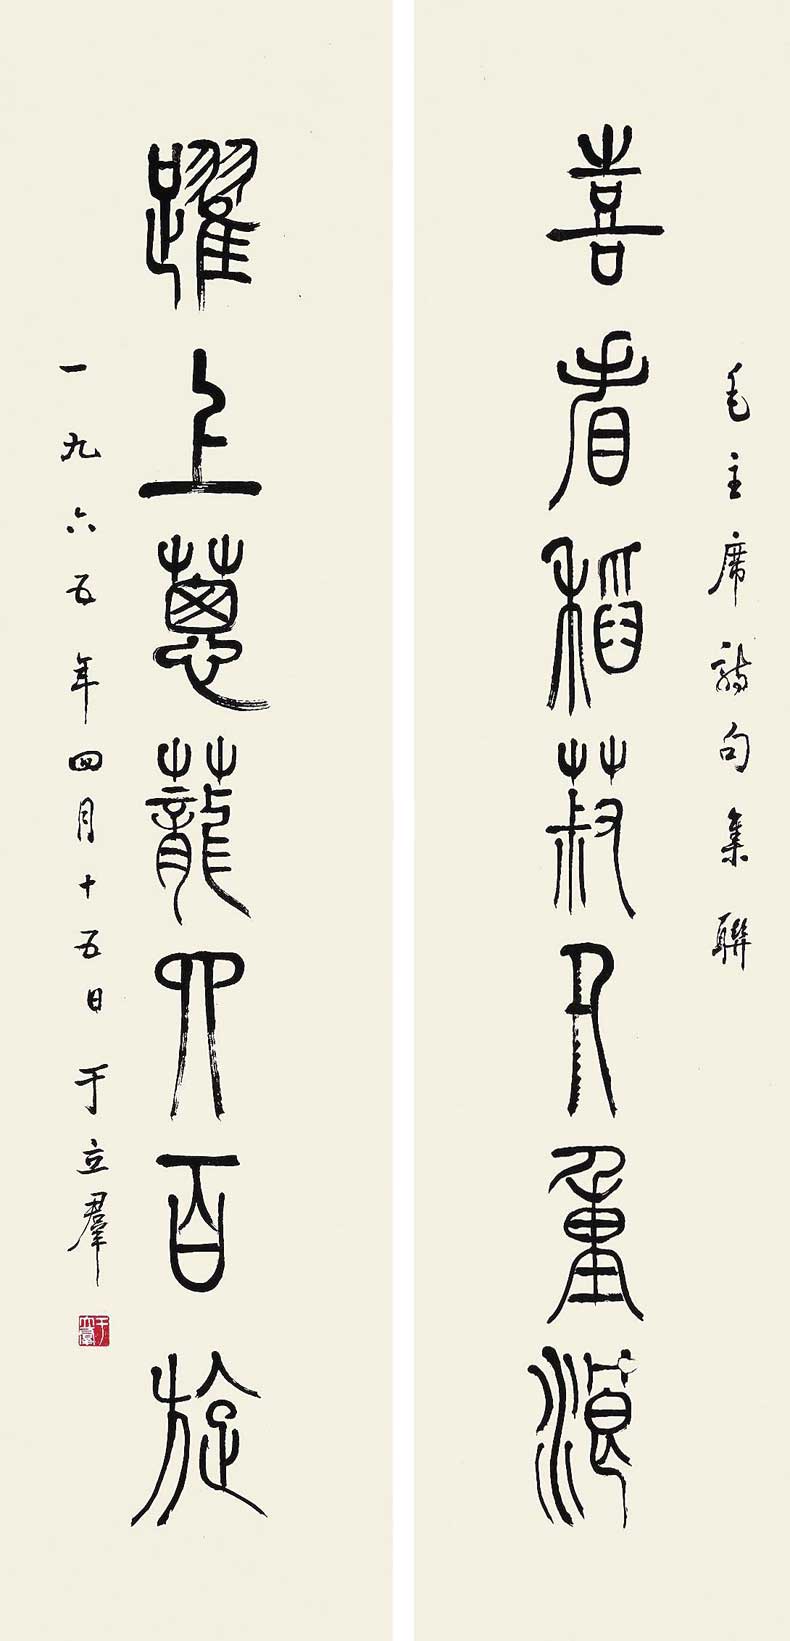 毛主席詩句集聯
喜看稻菽千重浪
躍上蔥蘢四百旋
一九六五年四月十五日于立羣
于立羣